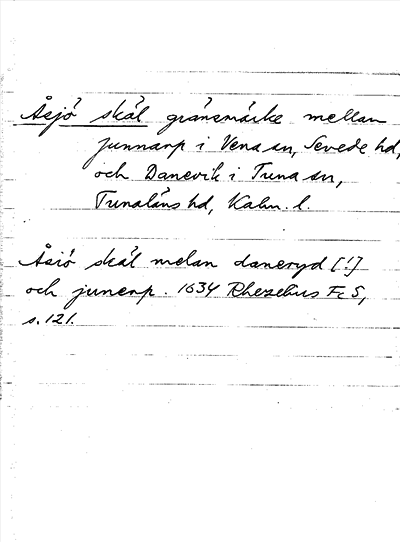 Åsjö skäl gränsmärke mellan
Junnarp i Vena sn, Sevede hd,
och Danevik i Tuna sn,
Tunaläns hd, Kalm. l.
Åsiö skäl melan daneryd [!]
och junerp. 1634 Rhezelius FcS,
s. 121.